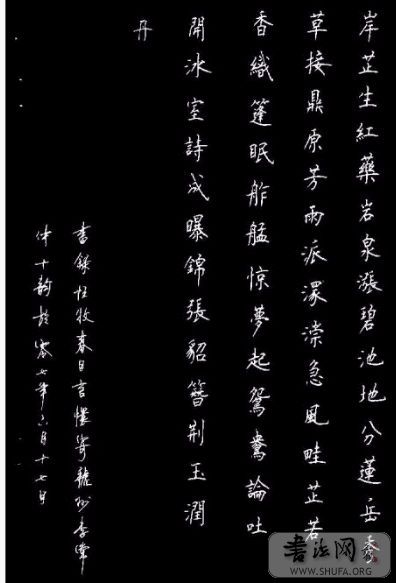 岸芷生紅藥岩泉漲碧池地分蓮岳秀
草接鼎原芳雨派潨漴急風畦芷若
香織篷眠舴艋惊夢起鴛鴦論吐
開冰室詩成曝錦張貂簪荆玉潤
丹
書錄杜牧春日言懷寄虢州李常
侍十韵於零七年六月十七日
书法网
WWW.SHUFA.ORG